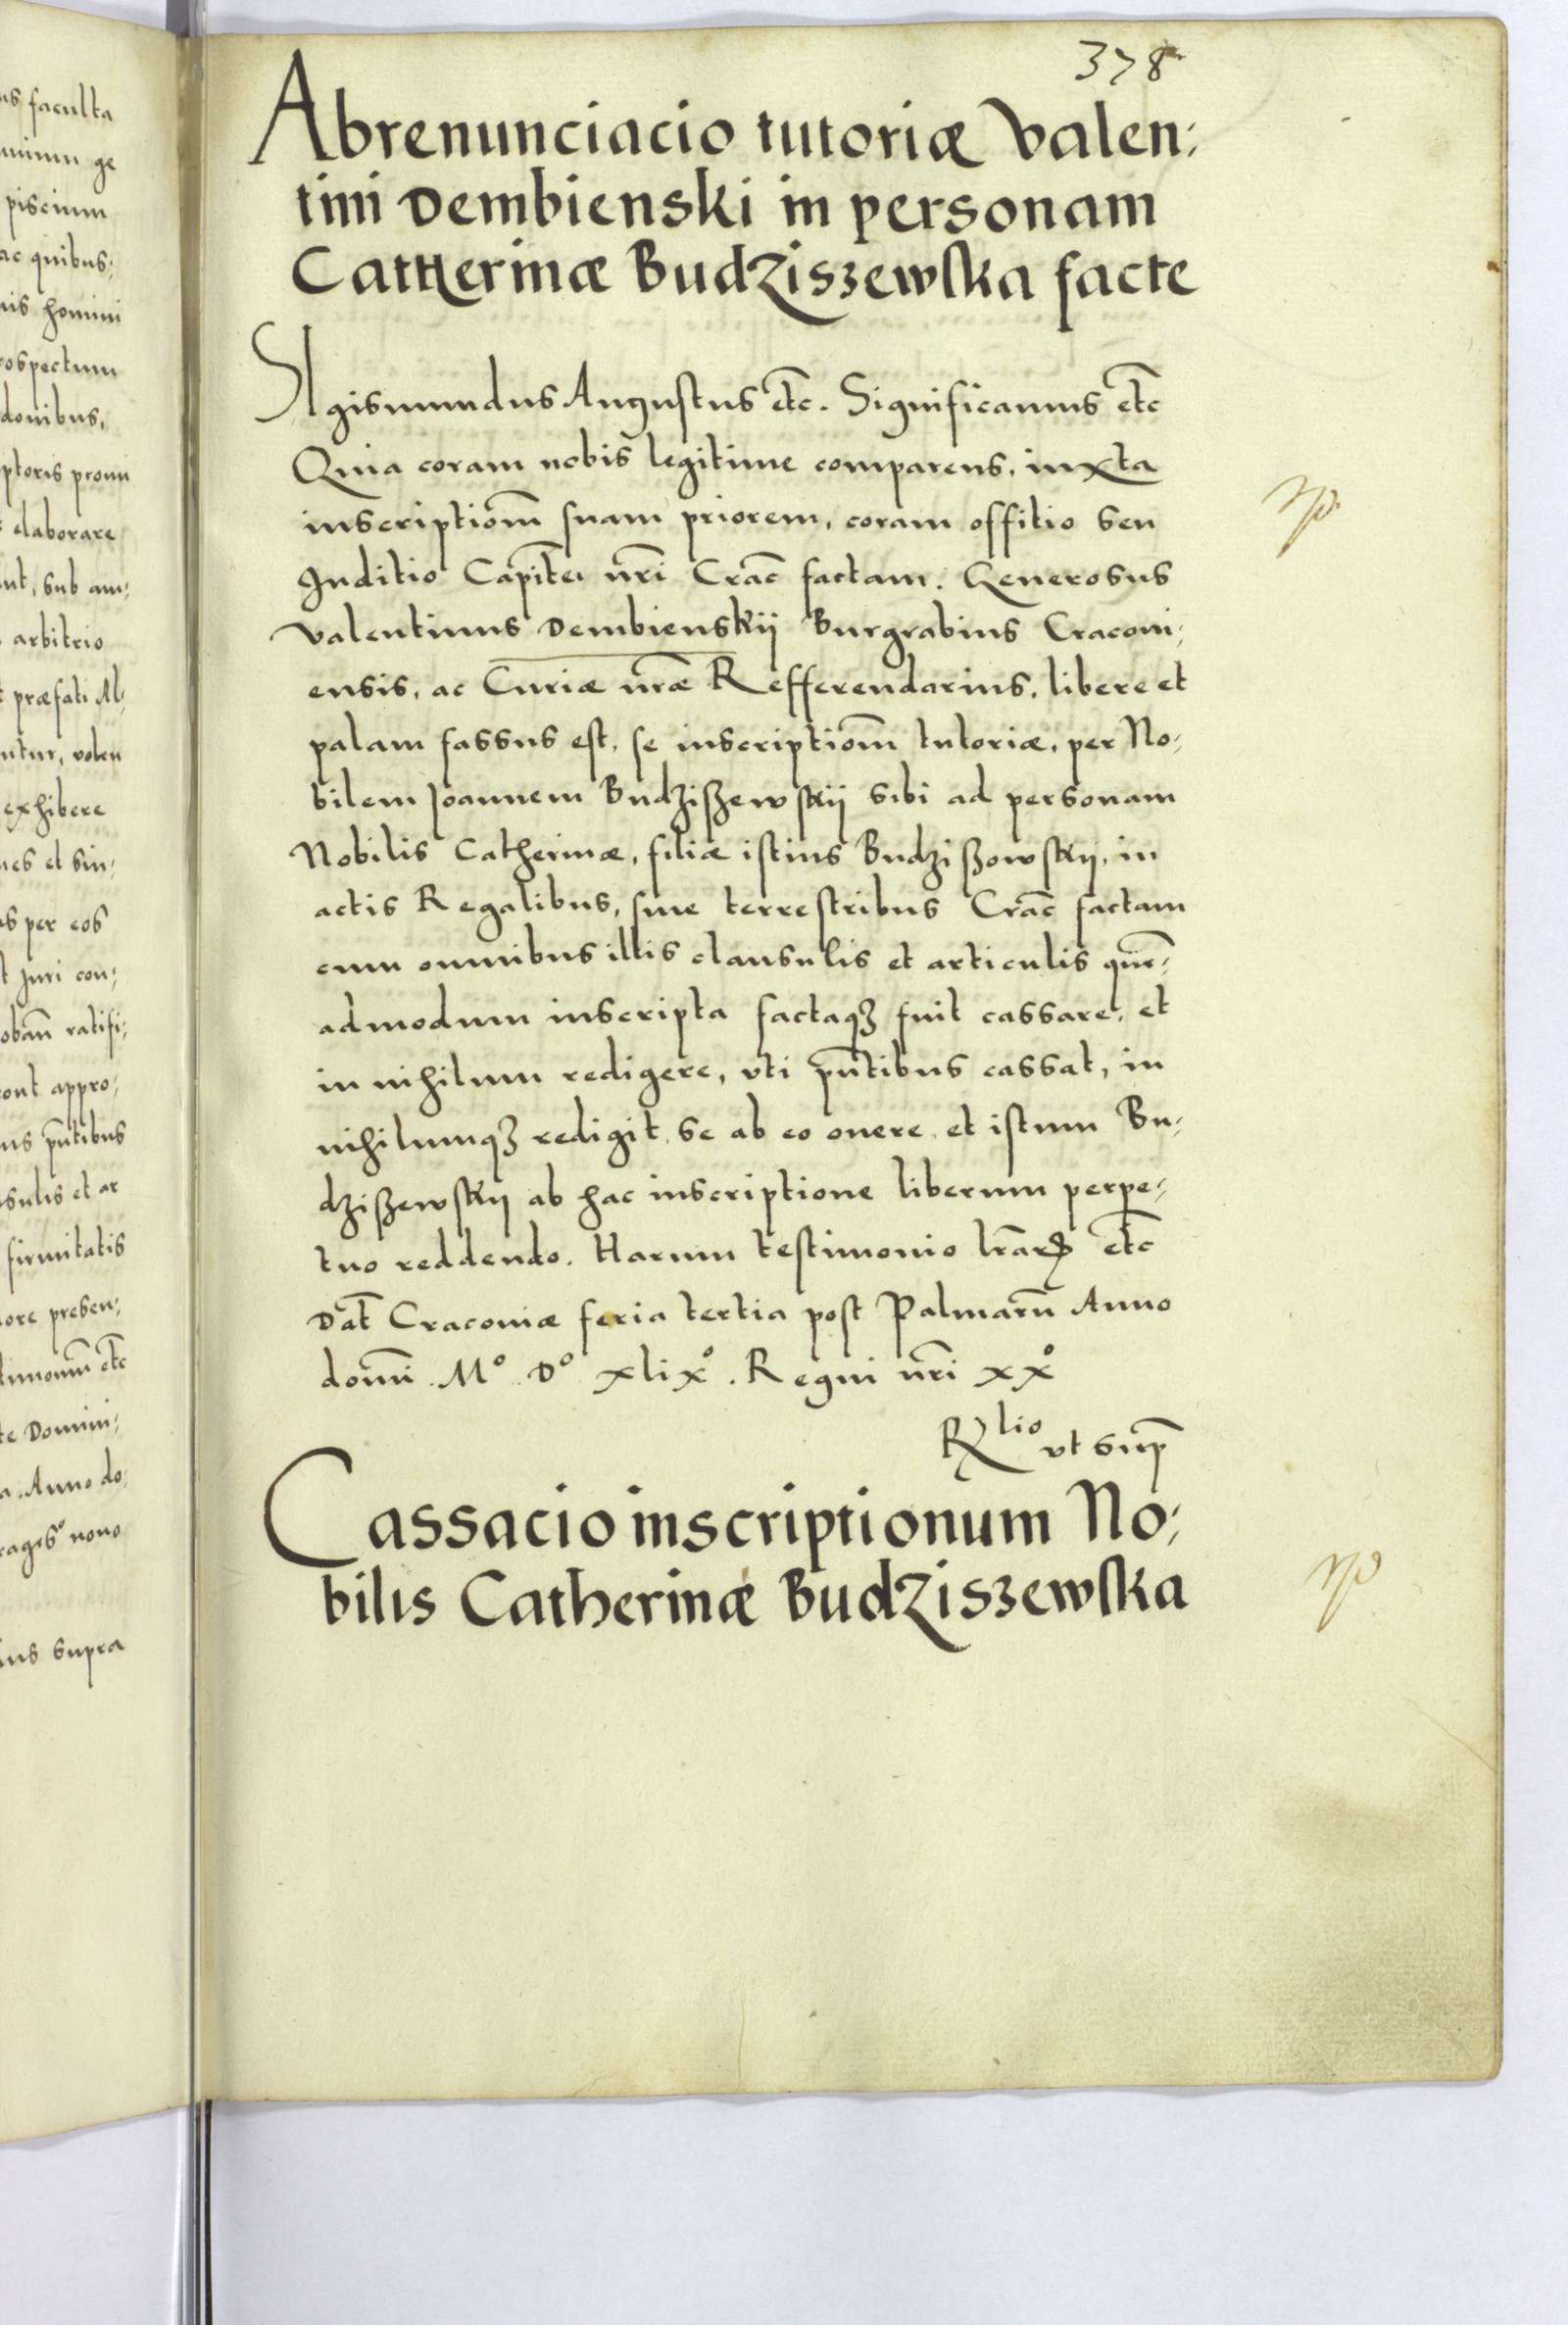 us faculta
minum ge
piscium
ac quibus,
nis homini
rospectum
donibus,
ptoris promi
elaborare
nt, sub am,
arbitrio
t præfati Al,
ntur, volen
exhibere
nes et sin,
as per eos
t Juri con,
obañ ratifi,
ront appro,
us pñtibus
sulis et ar
firmitatis
iore presen,
timoniũ etc̃
te Domini,
a. Anno do,
rages° nono
ius supra
378
Abrenunciacio tutoriæ Valen,
tini Dembienski in personam
Catherinæ Budziszewska facte
Sigismundus Augustus etc̃. Significamus etc̃
Quia coram nobis legitime comparens, iuxta
inscriptiom̃ suam priorem, coram offitio seu
Juditio Capit̃ei nr̃i Crac̃ factam. Generosus
Valentinus Dembienskij Burgrabius Craconi,
ensis, ac Curiæ nr̃æ Refferendarius, libere et
palam fassus est, se inscriptiom̃ tutoriæ, per No,
bilem Joannem Budziszewskij sibi ad personam
Nobilis Catherinæ, filiæ istius Budziszowskij, in
actis Regalibus, siue terrestribus Crac̃ factam
cum omnibus illis clausulis et articulis quẽ,
admodum inscripta factaqꝫ fuit cassare, et
in nihilum redigere, vti pñtibus cassat, in
nihilumqꝫ redigit, se ab eo onere, et istum Bu,
dziszewskij ab hac inscriptione liberum perpe,
tuo reddendo. Harum testimonio lr̃aꝝ etc̃
Dat̃ Craconiæ feria tertia post Palmarũ Anno
domĩ. M° D° xlix°. Regni nr̃i xx°
Rlio vt sup̃
Cassacio inscriptionum No,
bilis Catherinæ Budziszewska